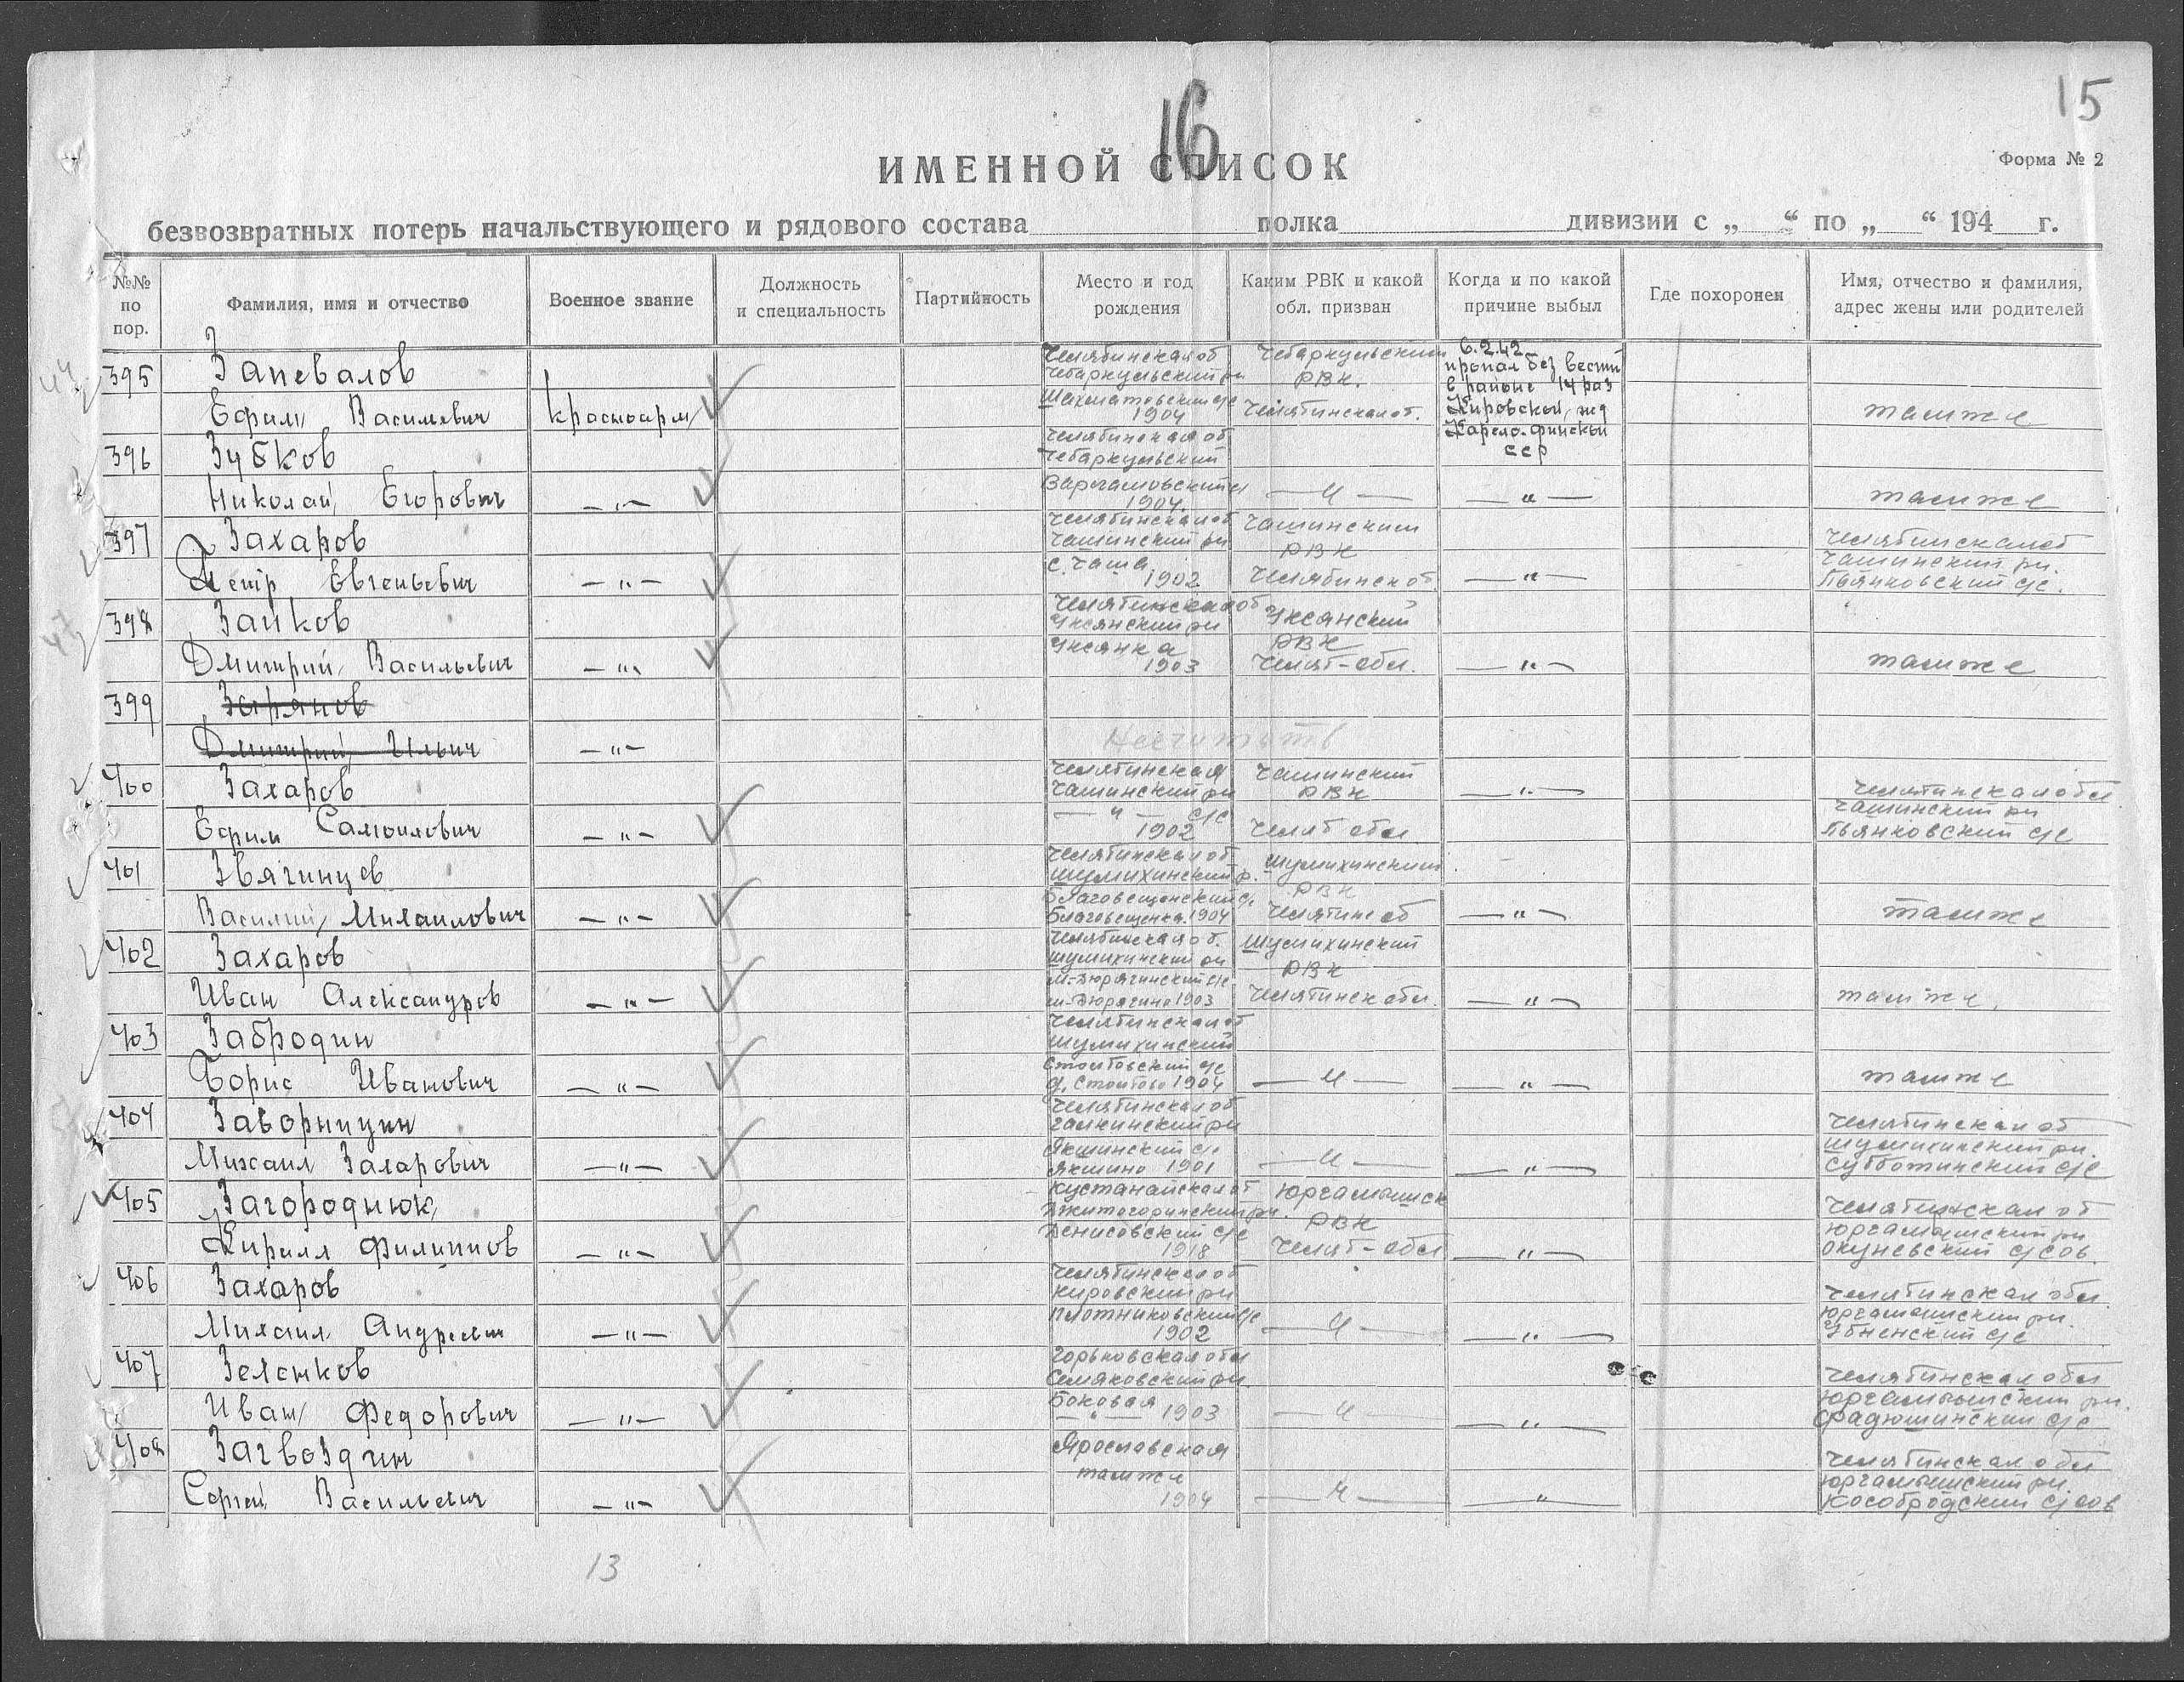 16
15
ИМЕННОЙ СПИСОК
Форма № 2
безвозвратных потерь начальствующего и рядового состава полка дивизии с „ “ по „ “ 194 г.
№№ по пор.
Фамилия, имя и отчество
Военное звание
Должность и специальность
Партийность
Место и год рождения
Каким РВК и какой обл. призван
Когда и по какой причине выбыл
Где похоронен
Имя, отчество и фамилия, адрес жены или родителей
395 Запевалов Челябинская об Чебаркульский 6.2.42
Чебаркульский рн РВК. пропал без вести
в районе 14 раз
Ефим Василевич Красноарм Шахматовский с/с 1904 Челябинская об. Кировской жд там же
Карело-финской
ССР
396 Зубков Челябинская об
Чебаркульский
Николай Егорович —"— 1904. —"— —"— там же
397 Захаров Челябинская об Чашинским Челябинская об
Чашинский рн РВК Чашинский рн.
Петр Евгеньевич —"— с. Чаша 1902 Челябинск об —"— Пьянковский с/с.
398 Зайков Челябинская об Уксянский
Уксянский рн РВК
Дмитрий Васильевич —"— Уксянка 1903 Челяб-обл. —"— там же
399 Зырянов
Дмитрий Ильич —"—
400 Захаров Челябинская Чашинский Челябинская обл
Чашинский рн РВК —"— Чашинский рн
Ефим Самоилович —"— —"— с/с 1902 Челяб обл Пьянковский с/с
401 Звягинцев Челябинская об Шумихинский
Шумихинский р. РВК
Василий Михайлович —"— Благовещенский с/с
Благовещенка 1904 Челябинс об —"— там же
402 Захаров Челябинская об. Шумихинский
Шумихинский рн РВК
Иван Александров —"— М-Дюрягинский с/с
М-Дюрягино 1903 Челябинск обл. —"— там же.
403 Забродин Челябинская об
Шумихинский
Борис Иванович —"— Стоитовский с/с
д. Стоитово 1904 —"— —"— там же
404 Заворницин Челябинская об Челябинская об
Галкинский рн Шумихинский рн.
Михаил Захарович —"— Якшинский с/с
Якшино 1901 —"— —"— Субботинский с/с
405 Загороднюк Кустанайская об Юргамышск Челябинская об
РВК Юргамышский рн
Кирилл Филиппов —"— Денисовский с/с
1918 Челяб-обл —"— Окуневский с/сов.
406 Захаров Челябинская об Челябинская обл.
Кировский рн Юргамышский рн.
Михаил Андреевич —"— Плотниковский с/с
1902 —"— —"— с/с
407 Зеленков Горьковская обл Челябинская обл
Семяковский рн Юргамышский рн.
Иван Федорович —"— Боковая
—"— 1903 —"— —"— с/с
408 Загвоздкин Ярославская Челябинская обл
там же Юргамышский рн.
Сергей Васильевич —"— 1904 —"— —"— Кособродский с/сов
13